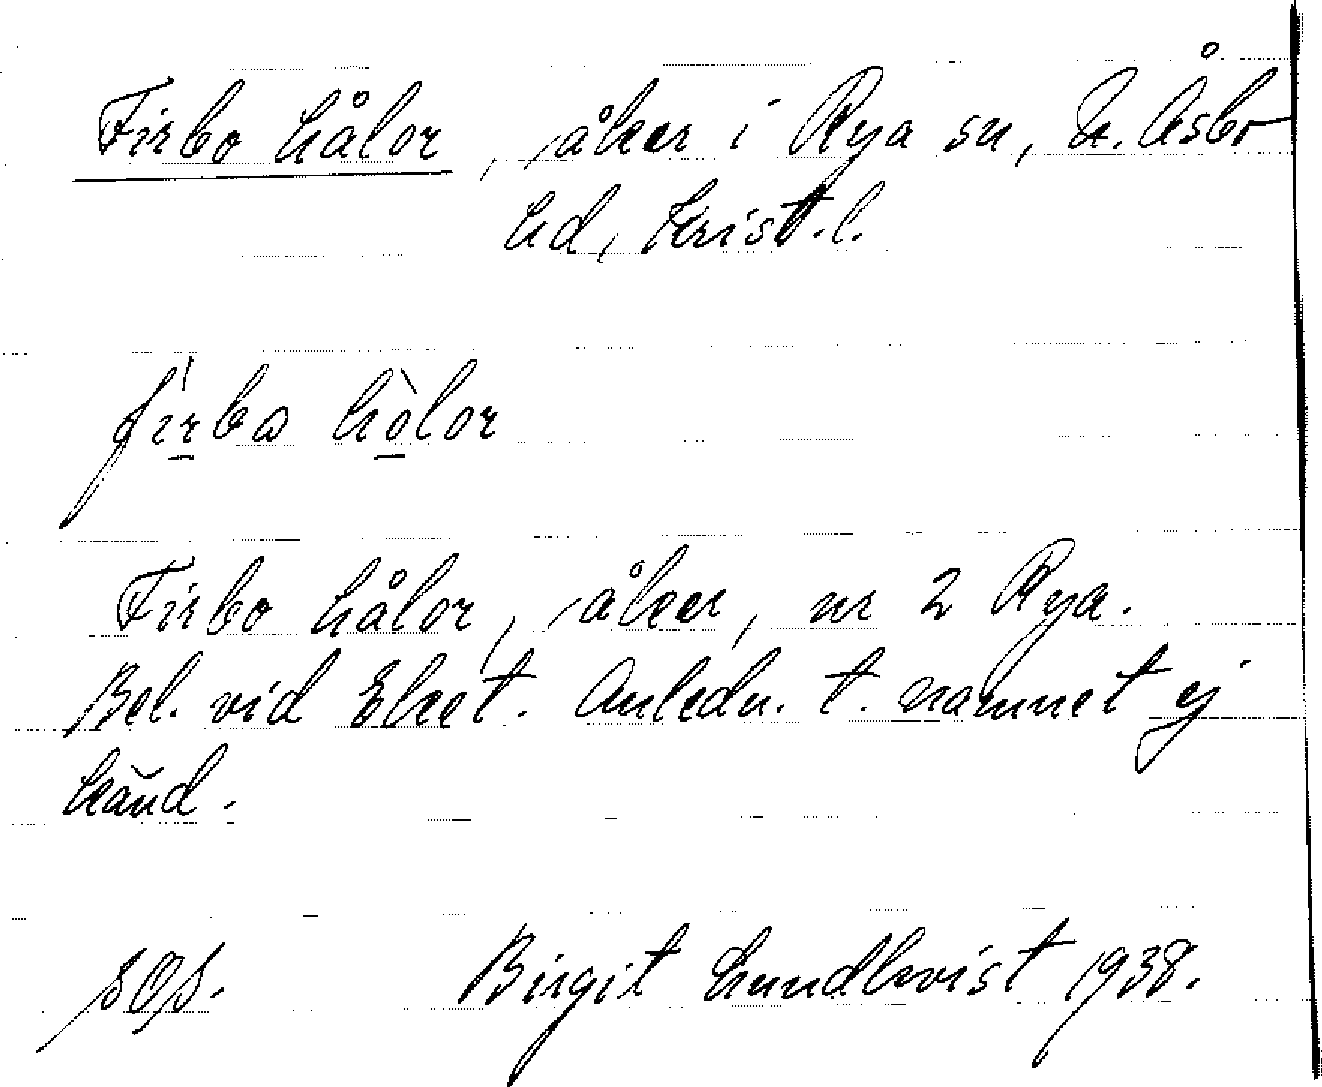 Firbo hålor, åker i Rya sn, N. Åsbo
hd, Krist.l.
fìrbo hòlor
Firbo hålor, åker, nr 2 Rya.
Bel. vid Eket. Anledn. t. namnet ej
känd.
sOs. Birgit Lundkvist 1938.